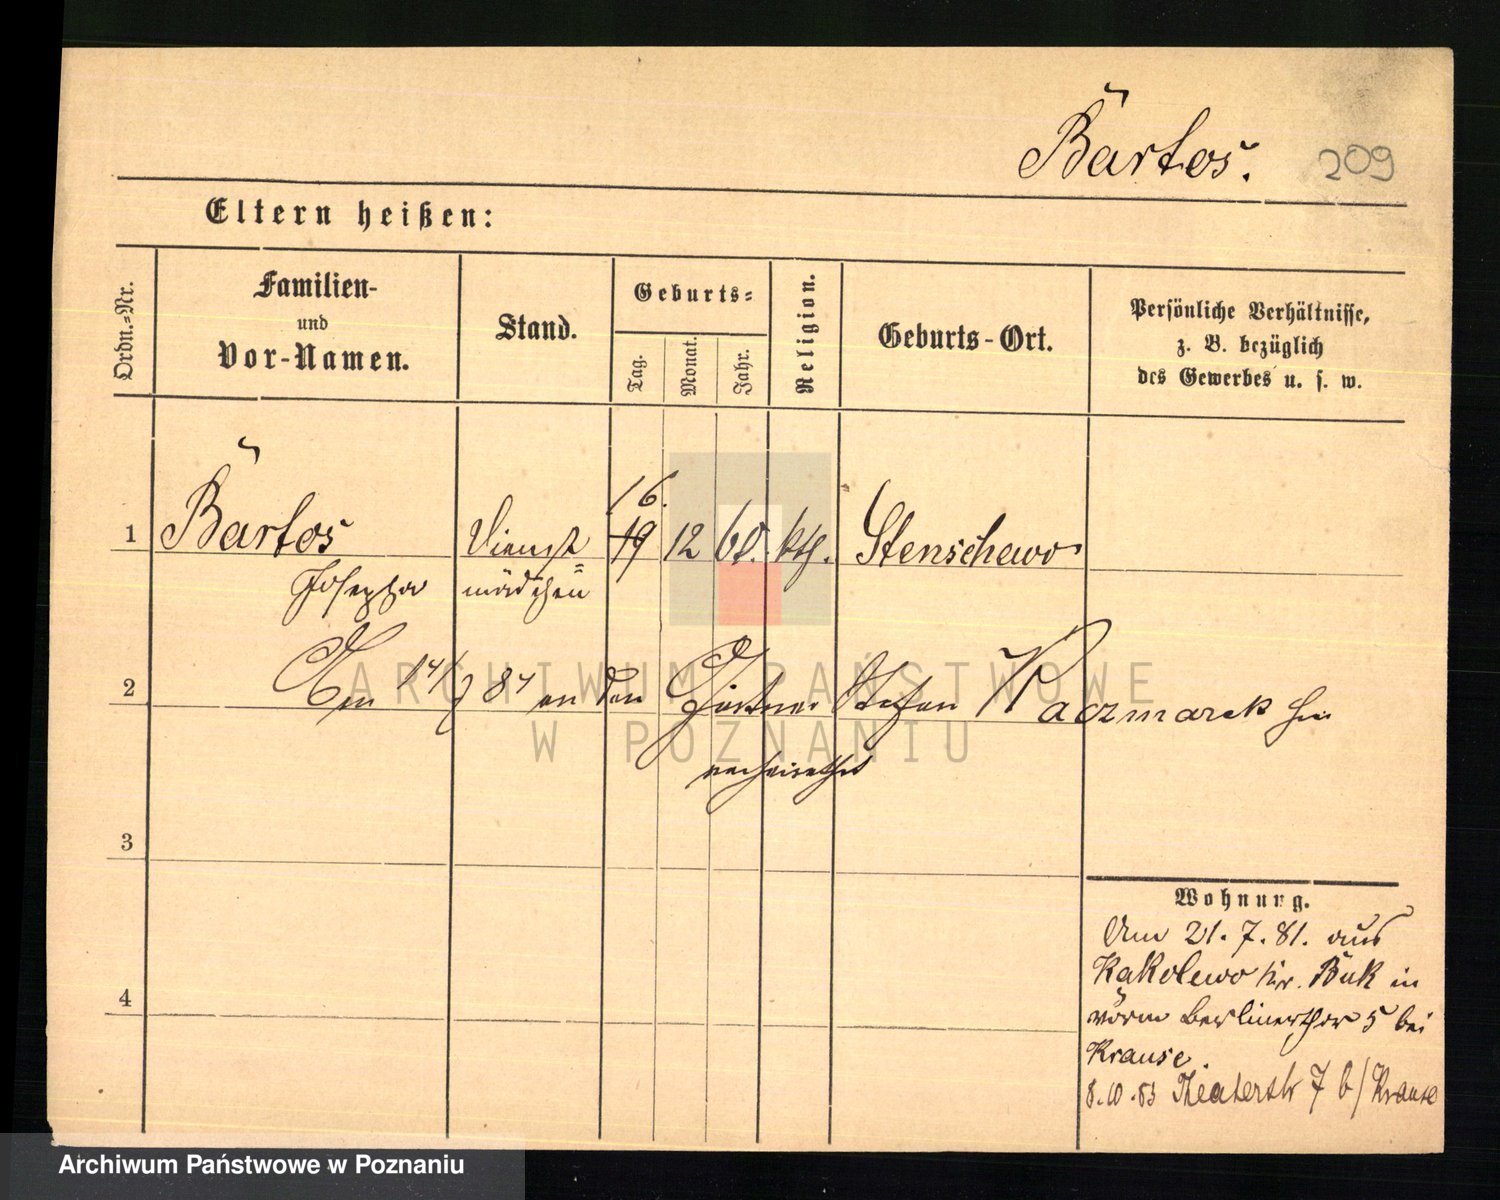 Bartos. 209
Eltern heißen:
Ordn.=Nr.
Familien-
und
Vor-Namen.
Stand.
Geburts=
Tag.
Monat.
Jahr.
Religion.
Geburts-Ort.
Persönliche Verhältnisse,
z. B. bezüglich
des Gewerbes u. s. w.
16.
1 Bartos Dienst= 19 12 60. kth. Stenschewo
Josepha mädchen
2 Am 14/7 84 an den Gärtner Stefan Kaczmarek hier
verheirathet
3
4
Wohnung.
Am 21. 7. 81. aus
Kakolewo Kr. Buk in
vorm Berlinerthor 5 bei
Krause.
8.10.83 Theaterstr 7 b/ Krause
ARCHIWUM PAŃSTWOWE
W POZNANIU
Archiwum Państwowe w Poznaniu